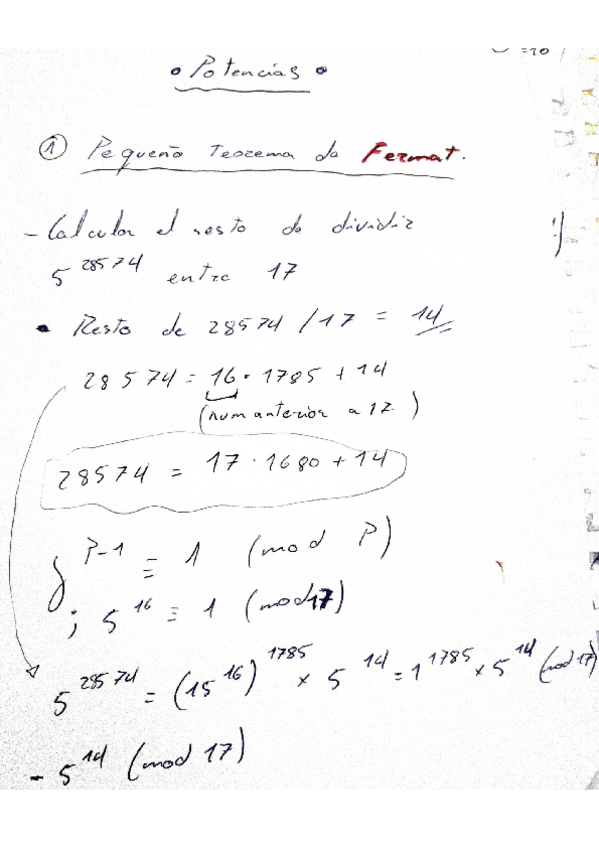 =10
• Potencias •
① Pequeño Teorema de Fermat.
- Calcular el resto de dividir
5^28574 entre 17
• Resto de 28574 / 17 = 14
28574 = 16 · 1785 + 14
(num anterior a 17)
28574 = 17 · 1680 + 14
P-1 ≡ 1 (mod P)
; 5^16 ≡ 1 (mod 17)
5^28574 = (15^16)^1785 × 5^14 = 1^1785 × 5^14 (mod 17)
- 5^14 (mod 17)